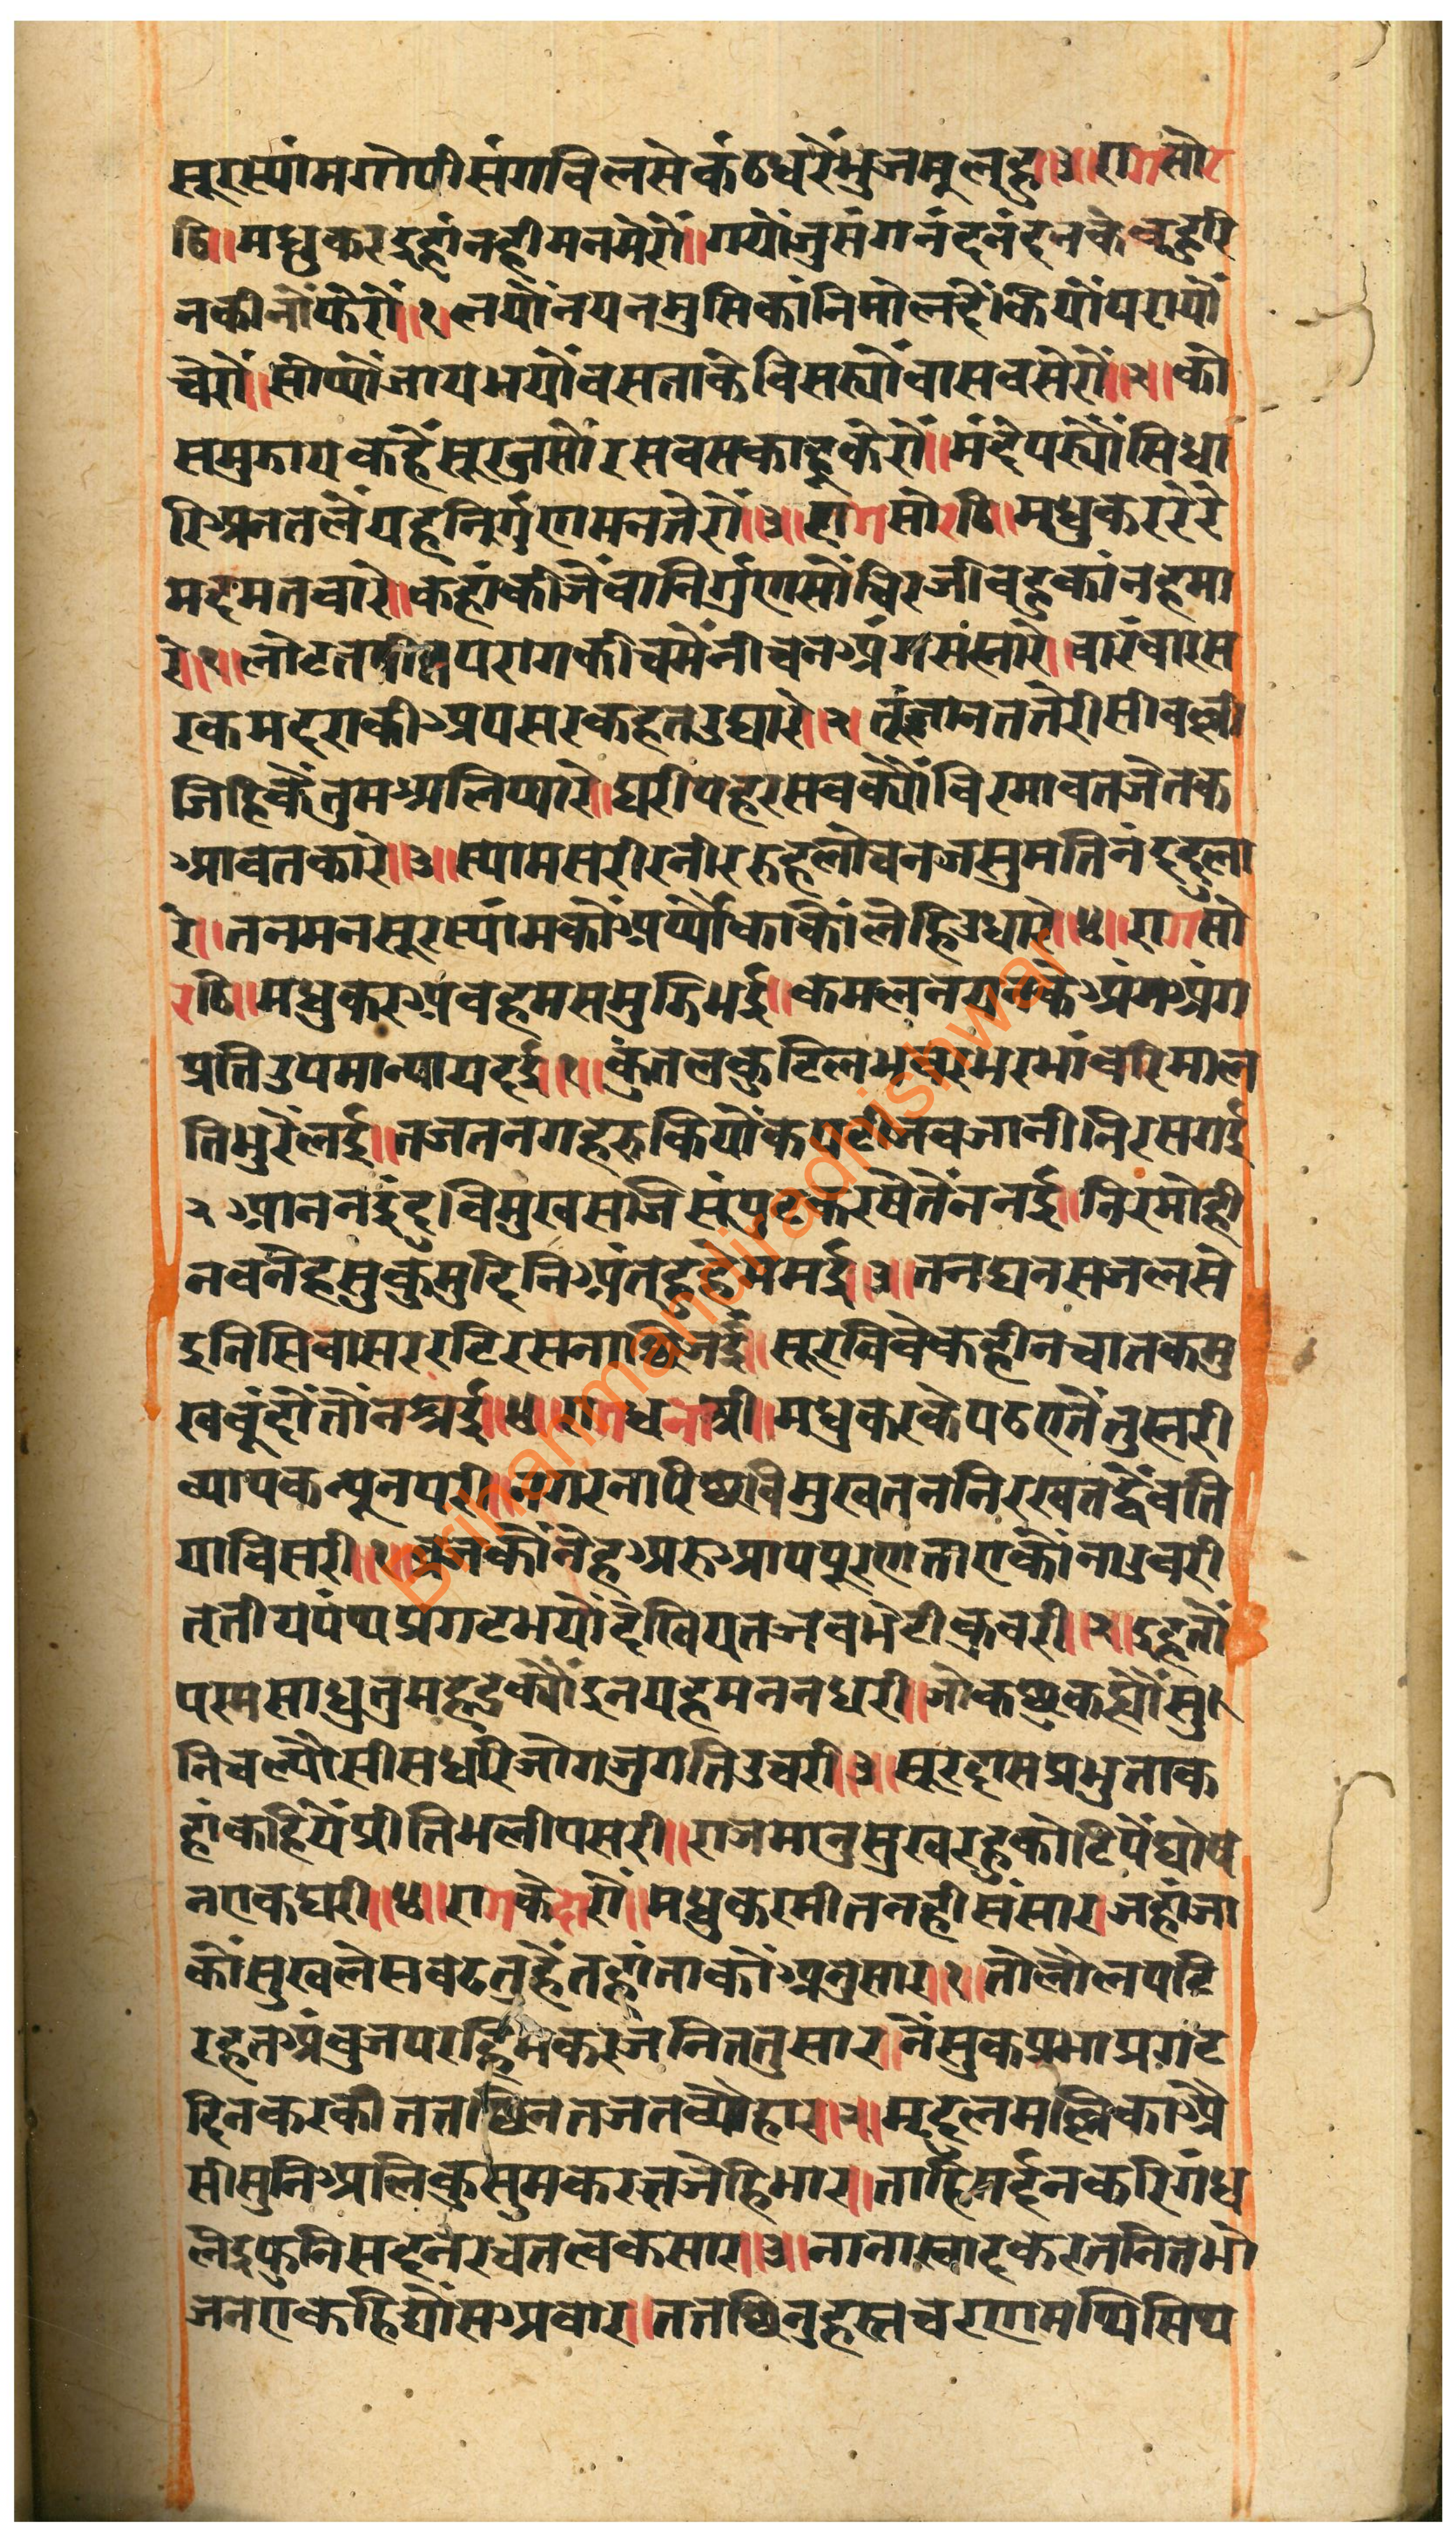 सूरस्यांमगोपीसंगविलसेकंठधरेंभुजमूलह॥३॥रागसोर
ठि॥मधुकरइहांनहीमनमेरौं॥गयोंजुसंगनंदनंदनकेबहुरि
नकीनोंफेरौं॥१॥लयोंनयनमुसिकांनिमोलदैंकियोंपरायौं
चेरौं॥सोंप्योंजायभयोंबसताकेविसर्‍योंवासबसेरौं॥२॥को
समुझायकहैंसूरजुसोंरसबसकाहूकेरौं॥मंदेपर्‍योंसिधा
रिअनतलैंयहनिर्गुणमनतेरौं॥३॥रागसोरठि॥मधुकररेरे
मदमतवारे॥कहांकीजेंवानिर्गुणसोंचिरजीवहुकांनहमा
रे॥१॥लोटतपीतपरागकीचमेंनीचनअंगसंम्हारे॥वारंवारस
रकमदराकीअपसरकहतउघारे॥२॥तूंजानततेरीसीवल्ली
जिहिकैंतुमअलिप्यारे॥घरीपहरसबक्योंविरमावतजेतक
आवतकारे॥३॥स्यामसरीरनीररुहलोचनजसुमतिनंददुला
रे॥तनमनसूरस्यांमकोंअर्प्योंकाकोंलेहिउधारे॥४॥रागसो
रठि॥मधुकरअबहमसमुझिभई॥कमलनयनकेअंगअंग
प्रतिउपमान्यायदई॥१॥कुंतलकुटिलभवरभरभांवरिमाल
तिभुरैलई॥तजतनगहरुकियोंकपटीजबजानीनिरसगई
२आननइंदुविमुखसजिसंपुटकरषेतेंननई॥निरमोही
नवनेहसुकुमुदिनिअंतहुहेममई॥३॥तनघनसजलसे
इनिसिवासररटिरसनाछिजई॥सूरविवेकहीनचातकमु
खबूंदोंतोंनस्रई॥४॥रागधनाश्री॥मधुकरकेपठएतेंतुम्हरी
व्यापकन्यूनपरी॥नगरनारिछबिमुखतननिरखतद्वैबति
याविसरी॥१॥ब्रजकोंनेहअरुआपपूरणताएकोंनाउबरी
त्रतीयपंथप्रगटभयोंदेखियतजबभेटीकुबरी॥२॥इहतों
परमसाधुतुमडहक्योंइनयहमननधरी॥जोकछुकह्योंसु
निचल्योसीसधरिजोगजुगतिउचरी॥३॥सूरदासप्रभुताक
हांकहियेंप्रीतिभलीपसरी॥राजमानुसुखरहुकोटिपेंघोष
नएकघरी॥४॥रागकेदारौं॥मधुकरमीतनहीसंसार।जहांजा
कोंसुखलेसबढतुहैंतहांताकोंअनुसार॥१॥तोलोलपटि
रहतअंबुजपरहिमकरजनिततुसार।नेसुकप्रभाप्रगट
दिनकरकीततछिनतजतव्योहार॥२॥मृदुलमल्लिकाअै
सीसुनिअलिकुसुमकरतजेहिभार।ताहिमर्दनकरिगंध
लेइपुनिसदनरचतत्वकसार॥३॥नानास्वादकरतनितभो
जनएकहिद्योंसअबार॥ततछिनुहस्तचरणमथिसिथ